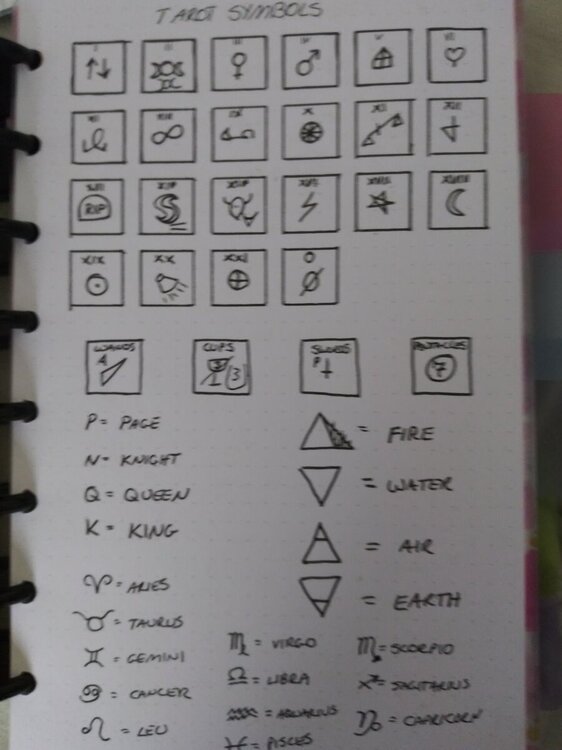 TAROT SYMBOLS
I II III IV V VI
VII VIII IX X XI XII
XIII XIV XV XVI XVII XVIII
RIP
XIX XX XXI 0
WANDS CUPS SWORDS PENTACLES
A 3 P 7
P = PAGE
N = KNIGHT
Q = QUEEN
K = KING
= FIRE
= WATER
= AIR
= EARTH
♈ = ARIES
♉ = TAURUS
♊ = GEMINI
♋ = CANCER
♌ = LEO
♍ = VIRGO
♎ = LIBRA
♒ = AQUARIUS
♓ = PISCES
♏ = SCORPIO
♐ = SAGITARIUS
♑ = CAPRICORN